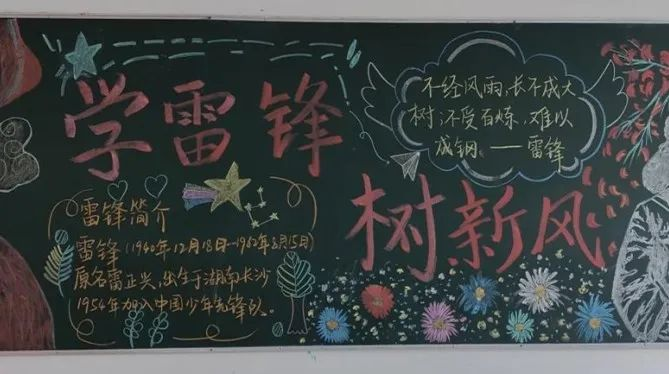 学雷锋
树新风
不经风雨,长不成大
树;不受百炼,难以
成钢 ——雷锋
雷锋简介
雷锋(1940年12月18日-1962年8月15日)
原名雷正兴,出生于湖南长沙
1954年加入中国少年先锋队。